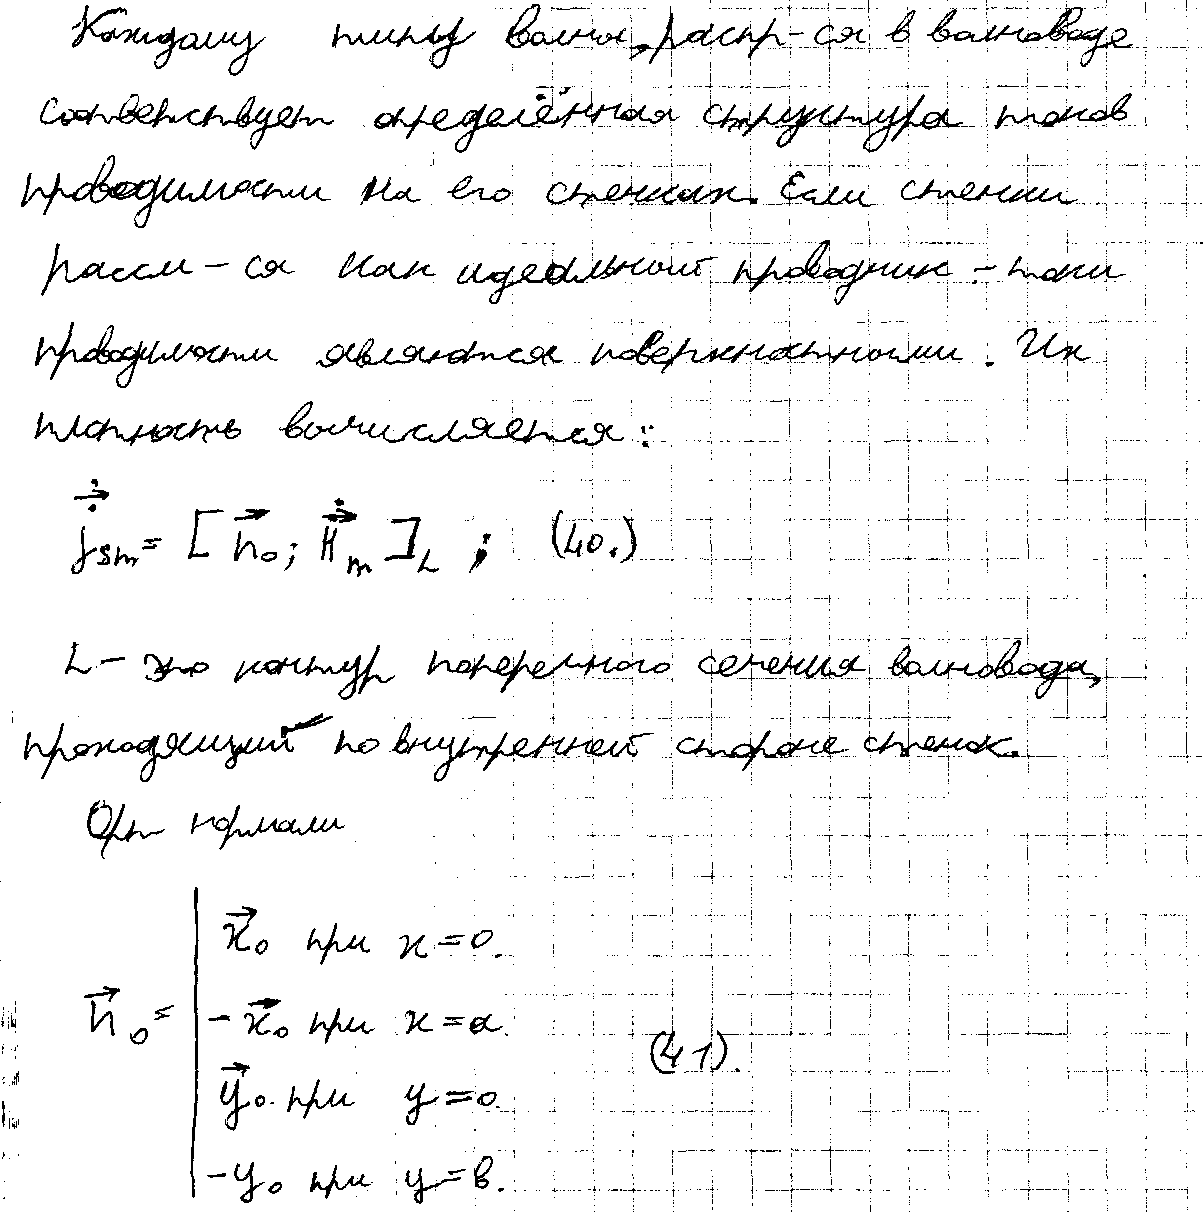 Каждому типу волны, распр-ся в волноводе
соответствует определённая структура токов
проводимости на его стенках. Если стенки
рассм-ся как идеальный проводник - токи
проводимости являются поверхностными. Их
плотность вычисляется:
j⃗̇sm = [n⃗₀; H⃗̇m]L ; (40.)
L - это контур поперечного сечения волновода,
проходящий по внутренней стороне стенок.
Орт нормали
x⃗₀ при x=0.
n⃗₀ = -x⃗₀ при x=a.
(41).
y⃗₀ при y=0.
-y₀ при y=в.